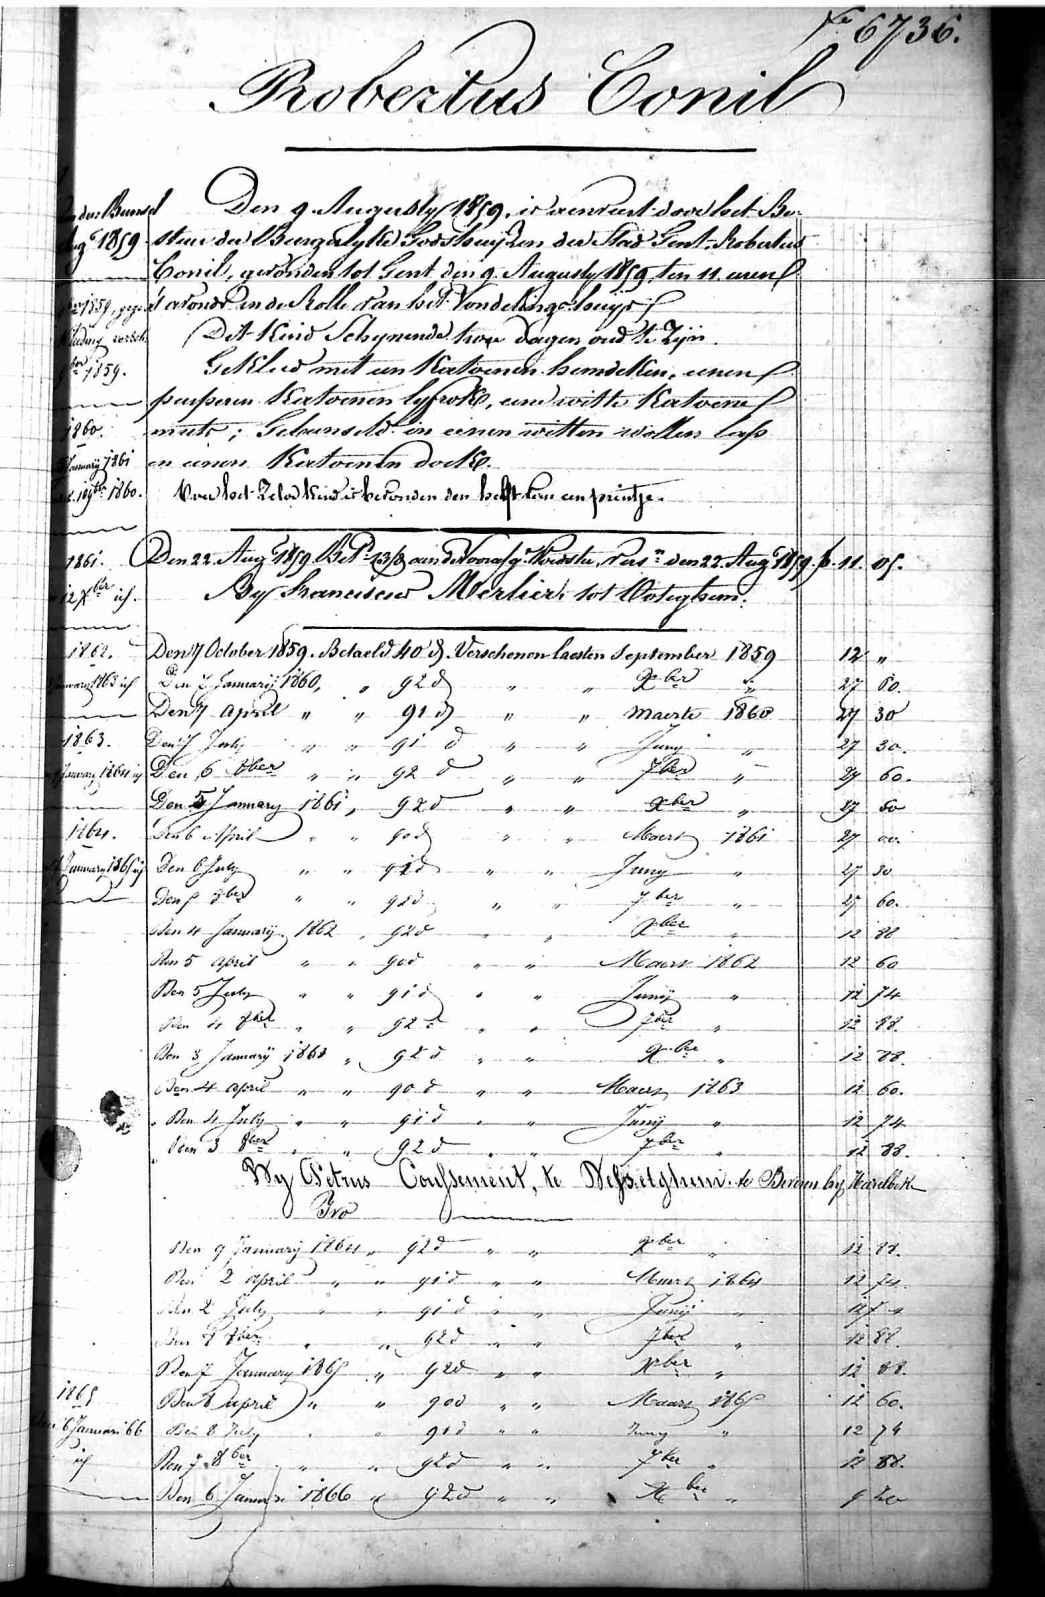 No 6736.
Robertus Conil
Den 9 Augusty 1859, is aenveert door het Be-
stuer der Burgerlyke Godshuijzen der Stad Gent, Robertus
Conil, gevonden tot Gent den 9. Augusty 1859, ten 11. uren
's avonds in de Rolle van het Vondelingshuijs.
Dit Kind Schynende twee dagen oud te zijn.
Gekleed met een Katoenen hemdeken, eenen
purperen Katoenen lyfrok, eene witte Katoene
muts; Gebunseld in eenen witten wollen lap
en eenen Katoenen doek.
Voor het Zelve Kind is bevonden den helft van een printje.
Den 22. Augt 1859 Bet. aen de Voorsg. Voedster, den 22. Augt 1859. fr. 11. 05.
By Franciscus Merlier, tot Woteghem.
Den 7 October 1859. Betaeld 40 d. Verschenen laesten September 1859 12 "
Den 7 Januarij 1860, " 92 d " " Xber " 27 60.
Den 7 April " " 91 d " " Maerte 1860 27 30
Den 7 July " " 91 d " " Juny " 27 30.
Den 6 8ber " " 92 d " " 7ber " 27 60.
Den 5 January 1861, 92 d " " Xber " 27 60
Den 6 April " " 90 d " " Maert 1861 27
Den 6 July " " 92 d " " Juny " 27 30
Den 5 8ber " " 92 d " " 7ber " 27 60.
Den 4 Januarij 1862 " 92 d " " Xber " 12 88
Den 5 April " " 90 d " " Maert 1862 12 60
Den 5 July " " 91 d " " Junij " 12 74
Den 4 8ber " " 92 d " " 7ber " 12 88.
Den 3 Januarij 1863 " 92 d " " Xber " 12 88.
Den 4 April " " 90 d " " Maert 1863 12 60.
Den 4 July " " 91 d " " Junij " 12 74
Den 3 8ber " " 92 d " " 7ber " 12 88.
By Petrus Coussement, te Desselghem. te Beveren by Harelbeke
Ivo
Den 9 Januarij 1864 " 92 d " " Xber " 12 88.
Den 2 April " " 91 d " " Maert 1864 12 74.
Den 2 July " " 91 d " " Junij " 12
Den 7 8ber " " 92 d " " 7ber " 12 88.
Den 7 January 1865 " 92 d " " Xber " 12 88.
Den 8 April " " 90 d " " Maart 1865 12 60.
Den 8 July " " 91 d " " Juny " 12 74
Den 7 8ber " " 92 d " " 7ber " 12 88.
Den 6 Januari 1866 " 92 d " " Xber " 9 20
1859
1859.
1860.
January 1861
1860.
1861.
1862.
January 1863
1863.
January 1864
1864.
January 1865
1865
6 Januari 66